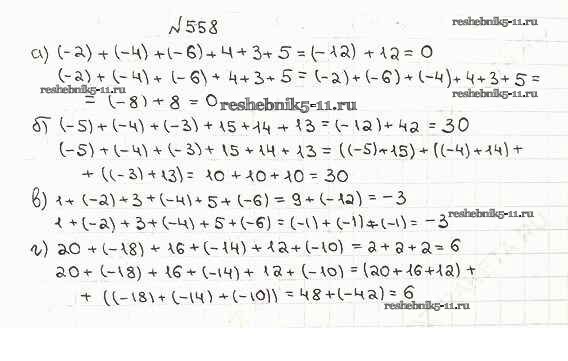 №558
reshebnik5-11.ru
а) (-2) + (-4) + (-6) + 4 + 3 + 5 = (-12) + 12 = 0
(-2) + (-4) + (-6) + 4 + 3 + 5 = (-2) + (-6) + (-4) + 4 + 3 + 5 =
reshebnik5-11.ru
reshebnik5-11.ru
= (-8) + 8 = 0
reshebnik5-11.ru
б) (-5) + (-4) + (-3) + 15 + 14 + 13 = (-12) + 42 = 30
(-5) + (-4) + (-3) + 15 + 14 + 13 = ((-5) + 15) + ((-4) + 14) +
+ ((-3) + 13) = 10 + 10 + 10 = 30
в) 1 + (-2) + 3 + (-4) + 5 + (-6) = 9 + (-12) = -3
reshebnik5-11.ru
1 + (-2) + 3 + (-4) + 5 + (-6) = (-1) + (-1) + (-1) = -3
г) 20 + (-18) + 16 + (-14) + 12 + (-10) = 2 + 2 + 2 = 6
20 + (-18) + 16 + (-14) + 12 + (-10) = (20 + 16 + 12) +
+ ((-18) + (-14) + (-10)) = 48 + (-42) = 6
reshebnik5-11.ru